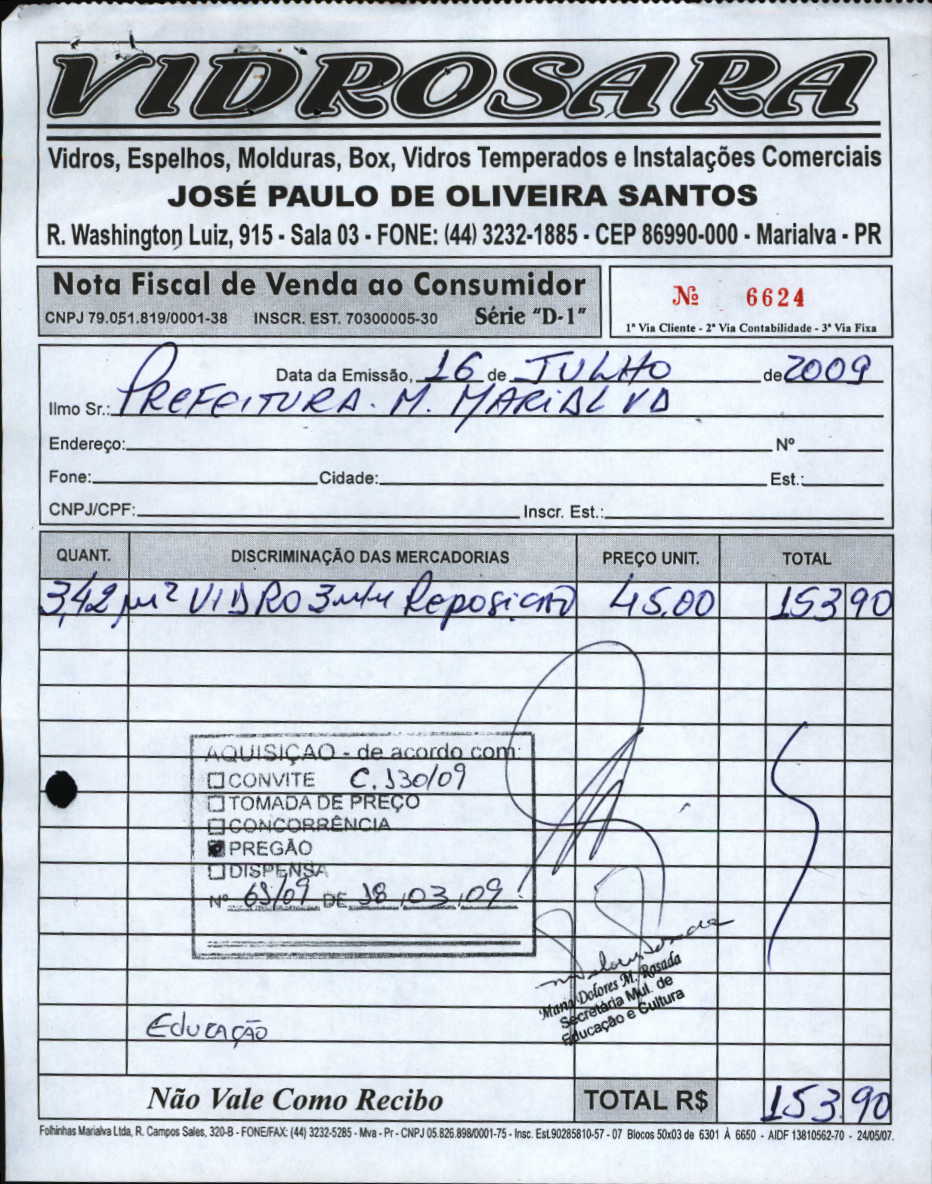 VIDROSARA
Vidros, Espelhos, Molduras, Box, Vidros Temperados e Instalações Comerciais
JOSÉ PAULO DE OLIVEIRA SANTOS
R. Washington Luiz, 915 - Sala 03 - FONE: (44) 3232-1885 - CEP 86990-000 - Marialva - PR
Nota Fiscal de Venda ao Consumidor
CNPJ 79.051.819/0001-38 INSCR. EST. 70300005-30 Série "D-1"
Nº 6624
1ª Via Cliente - 2ª Via Contabilidade - 3ª Via Fixa
Data da Emissão, 16 de JULHO de 2009
Ilmo Sr.: PREFEITURA. M. MARIALVA
Endereço: Nº
Fone: Cidade: Est.:
CNPJ/CPF: Inscr. Est.:
QUANT. DISCRIMINAÇÃO DAS MERCADORIAS PREÇO UNIT. TOTAL
3,42 m² VIDRO 3mm Reposição 45.00 153 90
AQUISIÇÃO - de acordo com:
CONVITE C. 130/09
TOMADA DE PREÇO
CONCORRÊNCIA
PREGÃO
DISPENSA
Nº 69/09 DE 18,03,09
Maria Dolores M. Rosada
Secretária Mul. de
Educação e Cultura
EDUCAÇÃO
Não Vale Como Recibo TOTAL R$ 153.90
Folhinhas Marialva Ltda, R. Campos Sales, 320-B - FONE/FAX: (44) 3232-5285 - Mva - Pr - CNPJ 05.826.898/0001-75 - Insc. Est.90285810-57 - 07 Blocos 50x03 de 6301 À 6650 - AIDF 13810562-70 - 24/05/07.